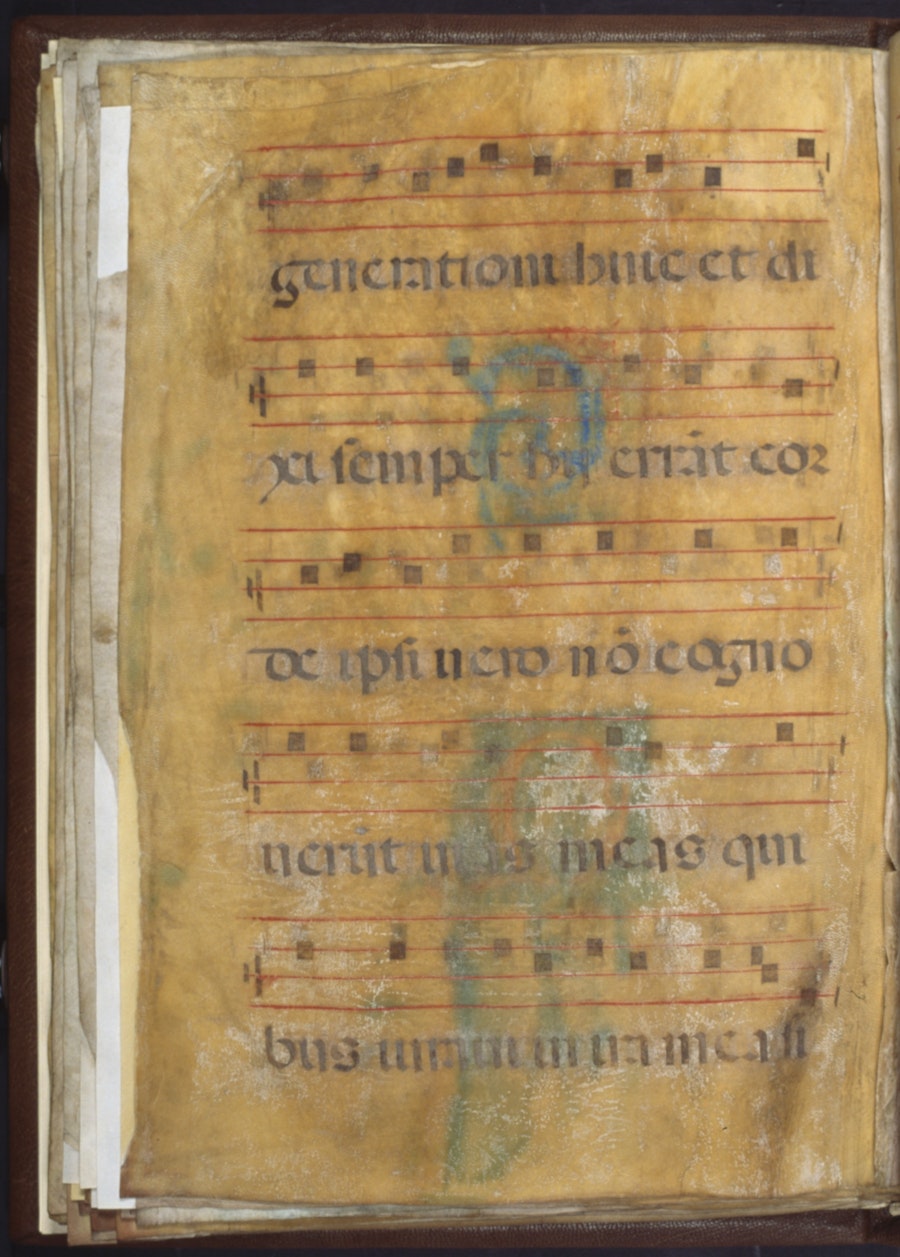 generationi huic et di
xi semper hii errāt cor
de ipsi uero nō cogno
uerūt uias meas qui
bus iuraui in ira mea si